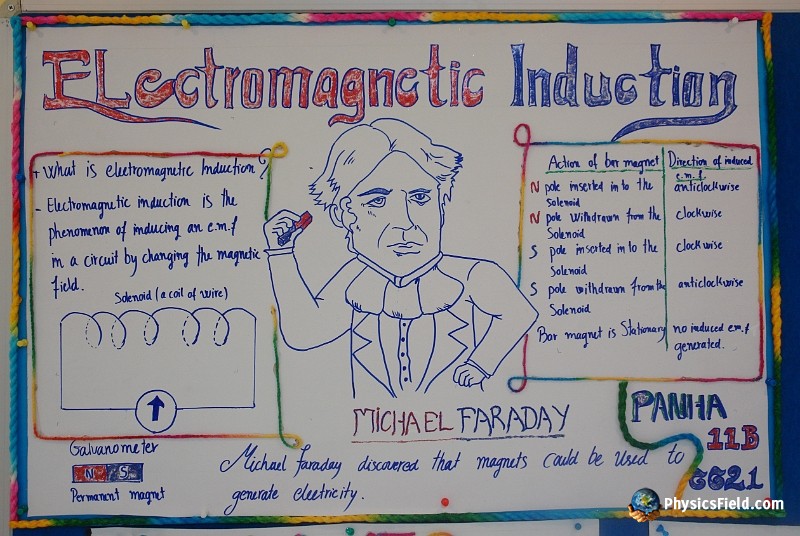 ELectromagnetic Induction
+ What is electromagnetic Induction?
- Electromagnetic induction is the
phenomenon of inducing an e.m.f
in a circuit by changing the magnetic
field.
Solenoid (a coil of wire)
Galvanometer
N S
Permanent magnet
MICHAEL FARADAY
Michael Faraday discovered that magnets could be used to
generate electricity.
Action of bar magnet Direction of induced
e.m.f
N pole inserted in to the anticlockwise
Solenoid
N pole withdrawn from the clockwise
Solenoid
S pole inserted in to the clockwise
Solenoid
S pole withdrawn from the anticlockwise
Solenoid
Bar magnet is Stationary no induced e.m.f
generated.
PANHA
11B
6621
PhysicsField.com